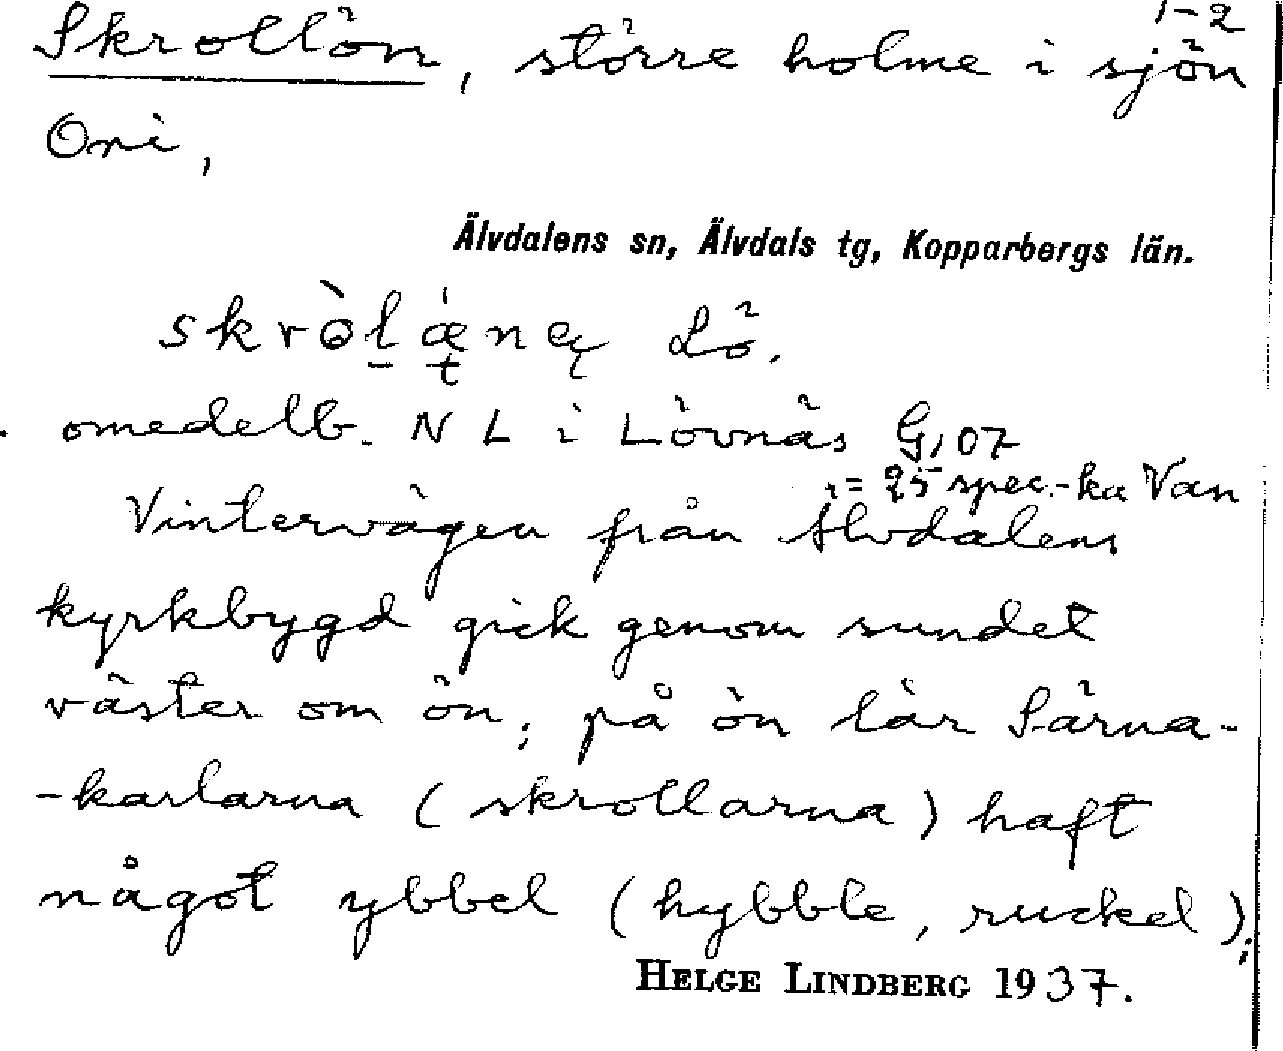 1-2
Skrollön, större holme i sjön
Ori,
Älvdalens sn, Älvdals tg, Kopparbergs län.
Lö.
omedelb. N L i Lövnäs G,07
= 25 spec.-ka Van
Vintervägen från Älvdalens
kyrkbygd gick genom sundet
väster om ön; på ön lär Särna-
-karlarna (skrollarna) haft
något ybbel (hybble, ruckel);
HELGE LINDBERG 1937.